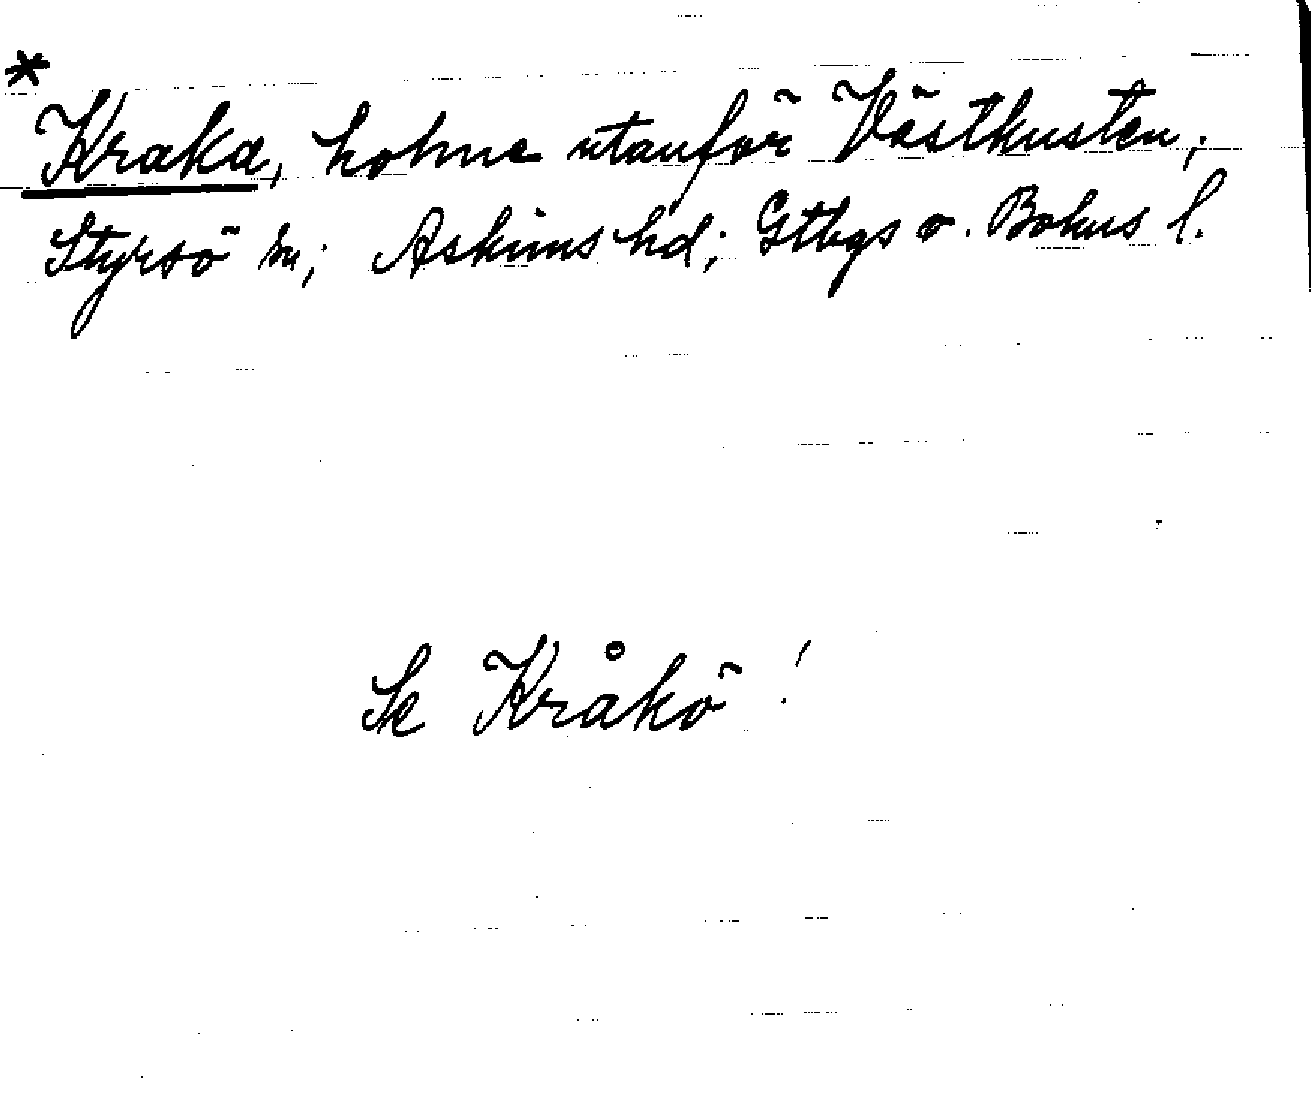 *
Kraka, holme utanför Västkusten;
Styrsö sn; Askims hd; Gtbgs o. Bohus l.
Se Kråkö!